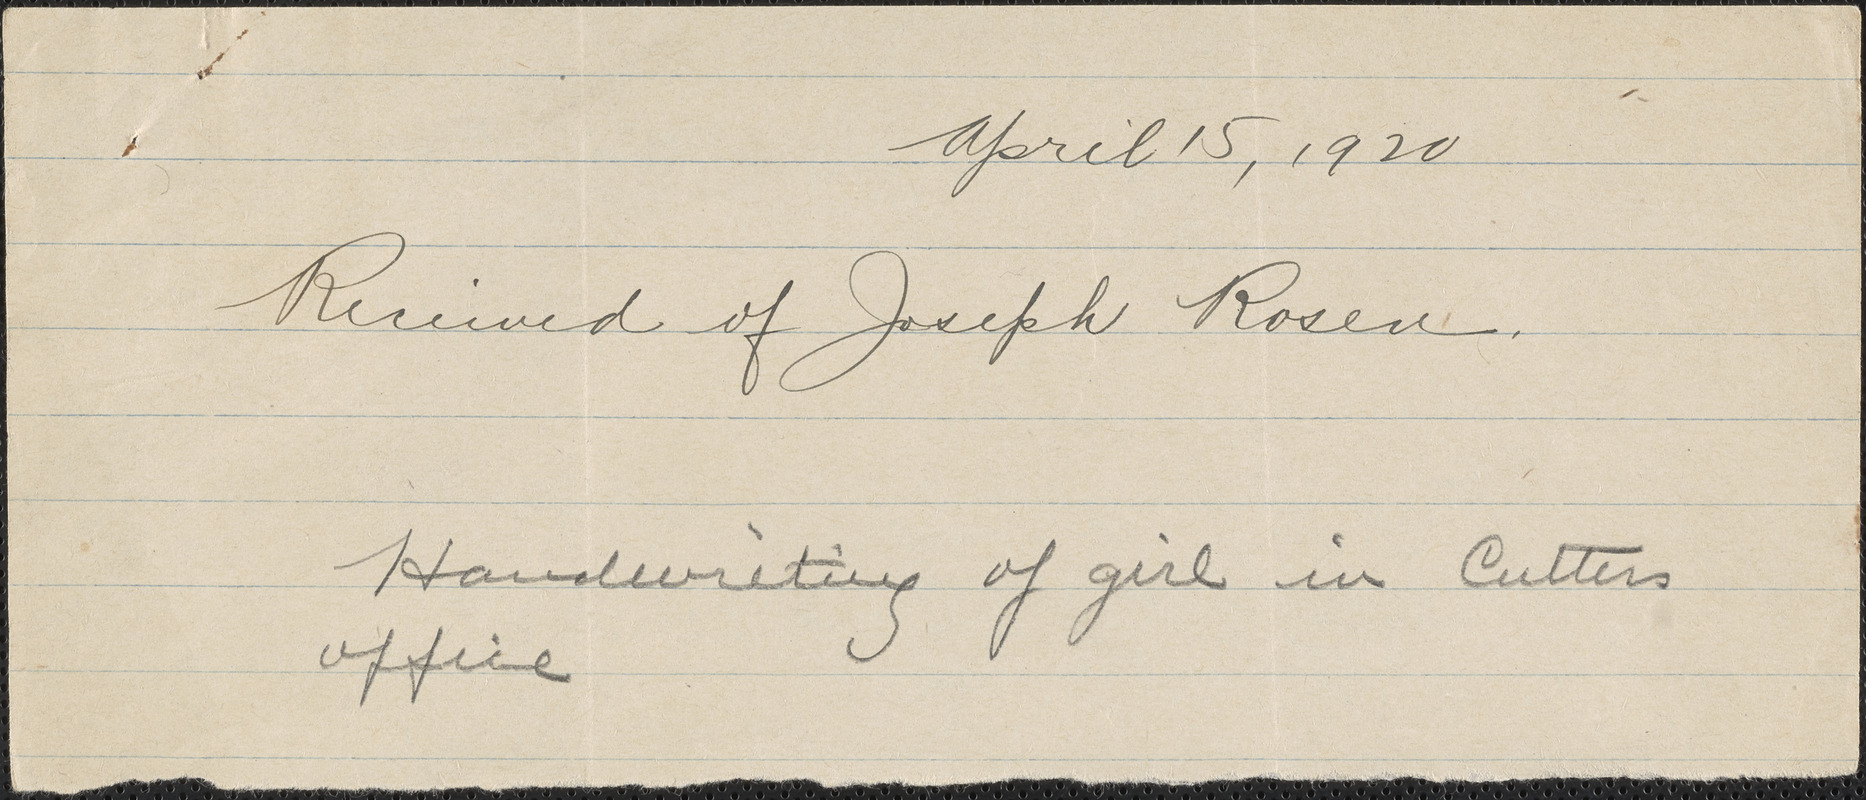 April 15, 1920
Received of Joseph Rosen.
Handwriting of girl in Cutters
office